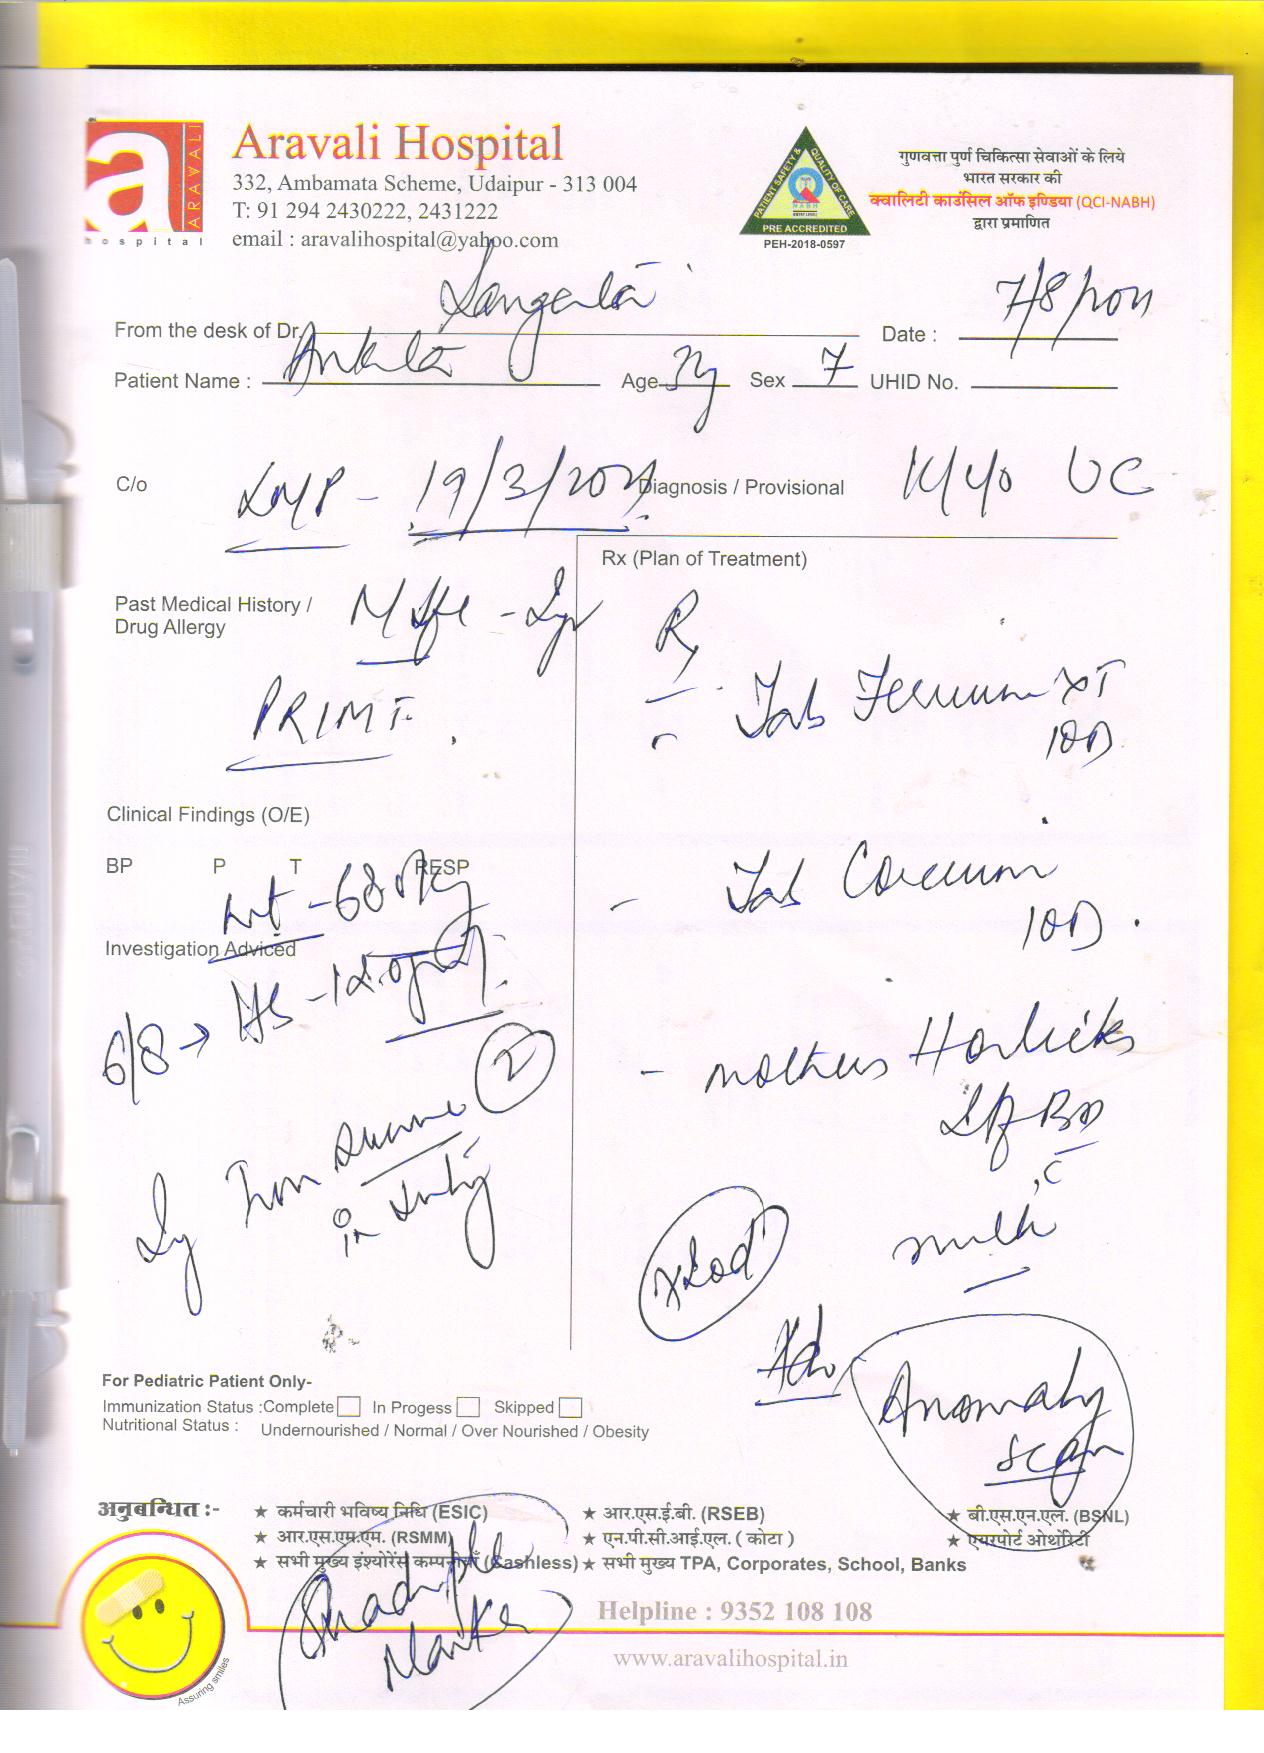 a ARAVALI
hospital
Aravali Hospital
332, Ambamata Scheme, Udaipur - 313 004
T: 91 294 2430222, 2431222
email : aravalihospital@yahoo.com
PATIENT SAFETY & QUALITY OF CARE
NABH
PRE ACCREDITED
PEH-2018-0597
गुणवत्ता पुर्ण चिकित्सा सेवाओं के लिये
भारत सरकार की
क्वालिटी काउंसिल ऑफ इण्डिया (QCI-NABH)
द्वारा प्रमाणित
From the desk of Dr. Sangeeta Date :
Patient Name : Ankita Age Sex F UHID No.
C/o LMP - 19/3/2021 Diagnosis / Provisional
Past Medical History /
Drug Allergy
PRIMI
Rx (Plan of Treatment)
Rx
- Tab Ferrium XT
1OD
Clinical Findings (O/E)
BP P T RESP
wt - 68
- Tab Corcium
1OD
Investigation Adviced
6/8 → Hb - 12.0
- mothers Horlicks
BD
c
milk
Iron sucrose 2
in
Adv
Anomaly
scan
For Pediatric Patient Only-
Immunization Status :Complete In Progess Skipped
Nutritional Status : Undernourished / Normal / Over Nourished / Obesity
अनुबन्धित :-
★ कर्मचारी भविष्य निधि (ESIC) ★ आर.एस.ई.बी. (RSEB) ★ बी.एस.एन.एल. (BSNL)
★ आर.एस.एम.एम. (RSMM) ★ एन.पी.सी.आई.एल. ( कोटा ) ★ एयरपोर्ट ओथोरिटी
★ सभी मुख्य इंश्योरेंस कम्पनीयाँ (Cashless) ★ सभी मुख्य TPA, Corporates, School, Banks
Helpline : 9352 108 108
www.aravalihospital.in
Assuring smiles